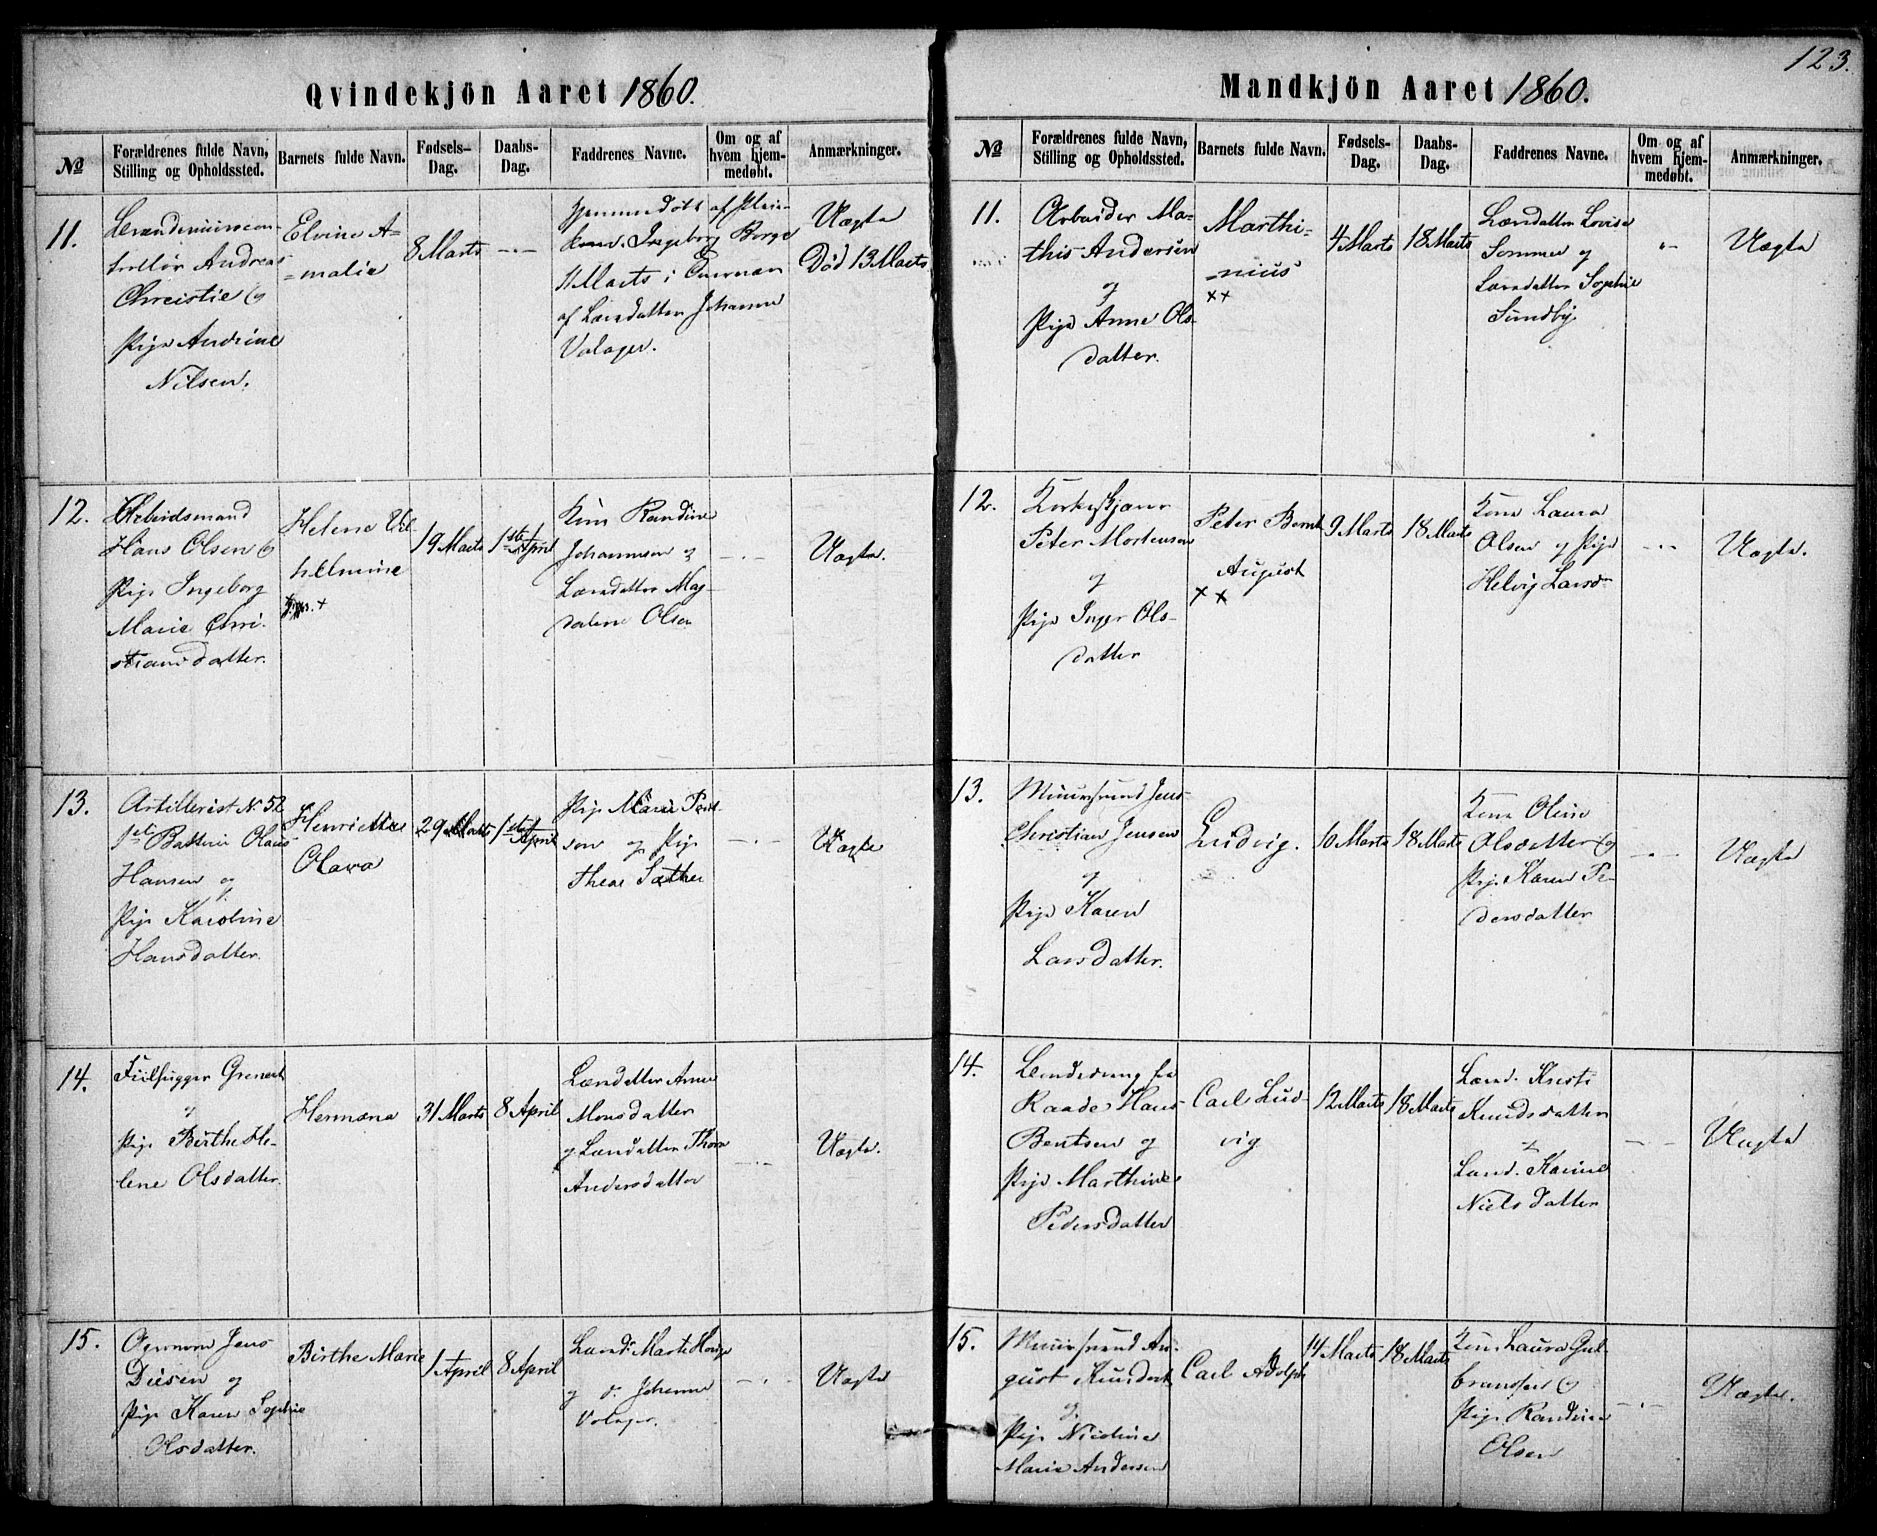 123.
Qvindekjön Aaret 1860.
№
Forældrenes fulde Navn, Stilling og Opholdssted.
Barnets fulde Navn.
Fødsels-Dag.
Daabs-Dag.
Faddrenes Navne.
Om og af hvem hjem-medøbt.
Anmærkninger.
11.
Andreas
Christie og
Pige Andrine
Nilsen.
Elvine A=
=malia
8 Marts
Ingeborg Borge
11 Marts i
af Læredatter Johanne
Valager.
Uægte
Død 13 Marts
12.
Arbeidsmand
Hans Olsen og
Pige Ingeborg
Marie Chri-
stiansdatter.
Helene Vil
helmine
19 Marts
1ste April
Kone Randine
Johannesen og
Læredatter Mag-
dalene Olsen
Uægte.
13.
Artillerist N. 52
1ste Batteri Olaus
Hansen og
Pige Karoline
Hansdatter.
Henriette
Olava
29 Marts
1ste April
Pige Marie
sen og Pige
Thea Sæther
Uægte
14.
og
Pige Birthe He-
lene Olsdatter.
Hermana
31 Marts
8 April
Læredatter Anne
Monsdatter
og Læredatter
Andersdatter
Uægte.
15.
Jens
og
Pige Karen Sophie
Olsdatter.
Birthe Marie
1 April
8 April
Lærd:
og d. Johanne
Valager.
Uægte
Mandkjön Aaret 1860.
№
Forældrenes fulde Navn, Stilling og Opholdssted.
Barnets fulde Navn.
Fødsels-Dag.
Daabs-Dag.
Faddrenes Navne.
Om og af hvem hjem-medøbt.
Anmærkninger.
11.
Arbeider Ma-
this Andersen
og
Pige Anne Ols-
datter.
Marthi=
=nius
××
4 Marts
18 Marts
Læredatter Lovise
Sommer og
Læredatter Sophie
Sundby.
Uægte
12.
Peter Mortensen
og
Pige Inger Ols-
datter
Peter Bernt
August
××
9 Marts
18 Marts
Kone Laura
Olsen og Pige
Helvig Larsd
Uægte.
13.
Muursvend Jens
Christian Jensen
og
Pige Karen
Larsdatter.
Ludvig.
10 Marts
18 Marts
Kone Oline
Olsdatter og
Pige Karen Pe-
dersdatter
Uægte
14.
fra
Raade Hans
Bentsen og
Pige Marthine
Pedersdatter
Carl Lud-
vig
12 Marts
18 Marts
Lærd. Kersti
Knudsdatter
og
Lærd. Karine
Nielsdatter
Uægte
15.
Muursvend Au-
gust
og
Pige Nicoline
Marie Andersen
Carl Adolph
14 Marts
18 Marts
Kone Laura Gul
bransen og
Pige Randine
Olsen
Uægte.